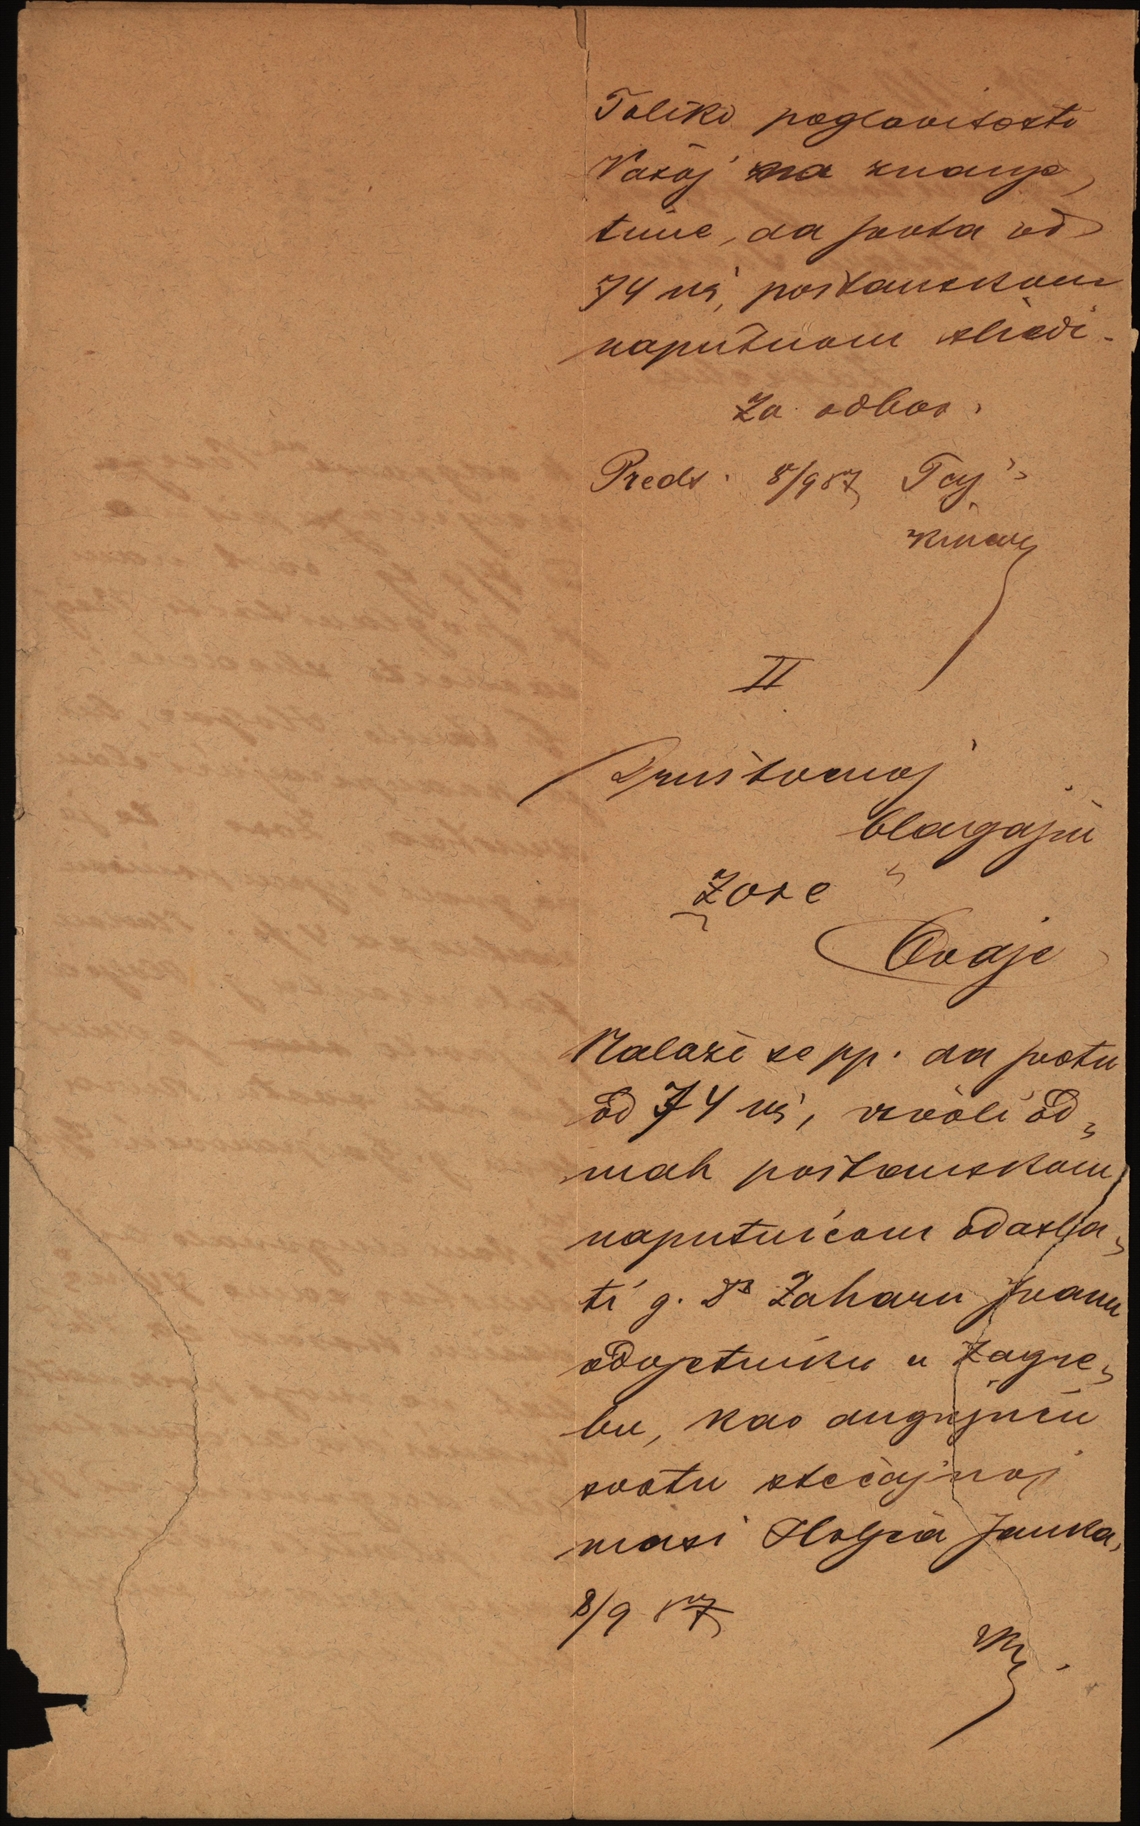 Toliko poglavitosti
Vašoj na znanje,
time, da svota od
74 nč, poštanskom
naputnom sliedi.
Za odbor.
Preds. 8/9 87 Taj.
II
Društvenoj
blagajni
Zore
Ovdje
Nalaže se pp. da svotu
od 74 nč, izvoli od„
mah poštanskom
naputnicom odasla„
ti g. Dr Zaharu Ivanu
odvjetniku u Zagre„
bu, kao dugujuću
svotu stečajnoj
masi Holjca Janka,
8/9 87